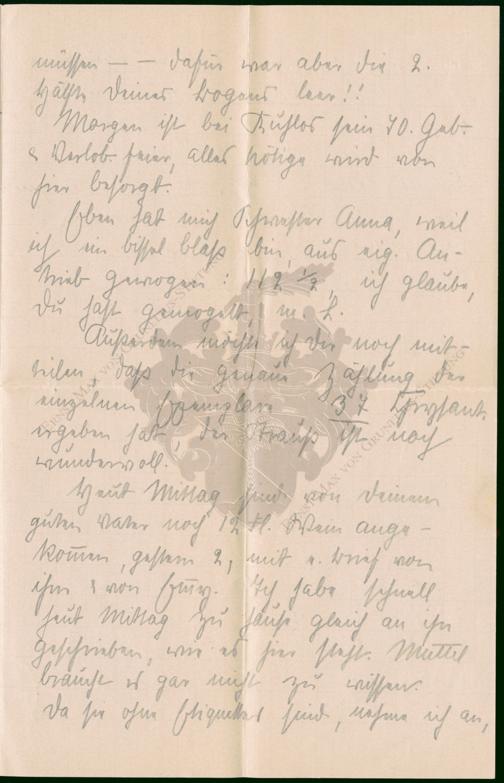 müssen — — dafür war aber die 2.
Hälfte Deines Bogens leer!!
Morgen ist bei Kuhlos sein 70. Geb.
& Verlob. feier, alles nötige wird von
hier besorgt.
Eben hat mich Schwester Anna, weil
ich ein bissel blaß bin, aus eig. An-
trieb gewogen: 112 ½, ich glaube,
Du hast gemogelt, m. L.
Außerdem möchte ich Dir noch mit-
teilen, daß die genaue Zählung der
einzelnen Exemplare 37 Chrysant.
ergeben hat, der Strauß ist noch
wundervoll.
Heut Mittag sind von Deinem
guten Vater noch 12 Fl. Wein ange-
kommen, gestern 2, mit e. Brief von
ihm & von Emmy. Ich habe schnell
heut Mittag zu Hause gleich an ihn
geschrieben, wie es hier steht. Muttel
braucht es gar nicht zu wissen.
Da sie ohne Etiquettes sind, nehme ich an,
ERNST MAX VON GRUNELIUS-STIFTUNG
ERNST MAX VON GRUNELIUS-STIFTUNG